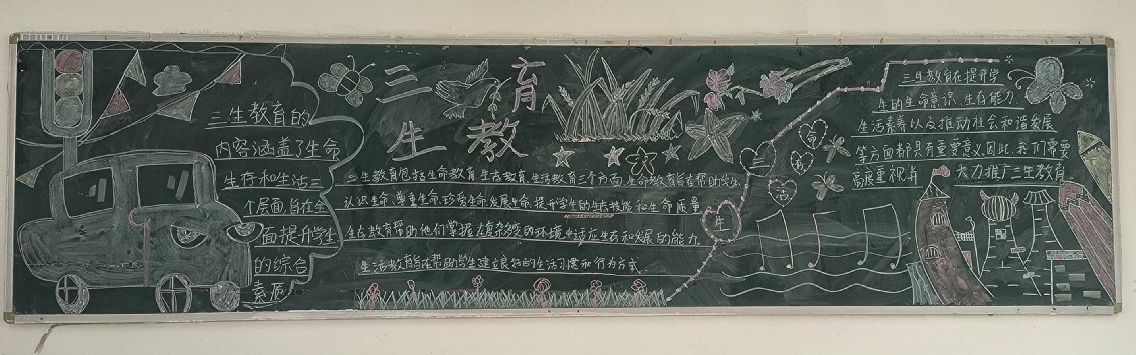 三生教育的
内容涵盖了生命
生存和生活三
个层面,旨在全
面提升学生
的综合
素质!
三生教育
三生教育包括生命教育,生存教育,生活教育三个方面,生命教育旨在帮助学生
认识生命,尊重生命,珍爱生命,发展生命,提升学生的生存技能和生命质量
生存教育帮助他们掌握在复杂多变的环境中适应生存和发展的能力
生活教育旨在帮助学生建立良好的生活习惯和行为方式.
三
生
教
育
三生教育在提升学
生的生命意识、生存能力
生活素养以及推动社会和谐发展
等方面都具有重要意义,因此,我们需要
高度重视并 大力推广三生教育